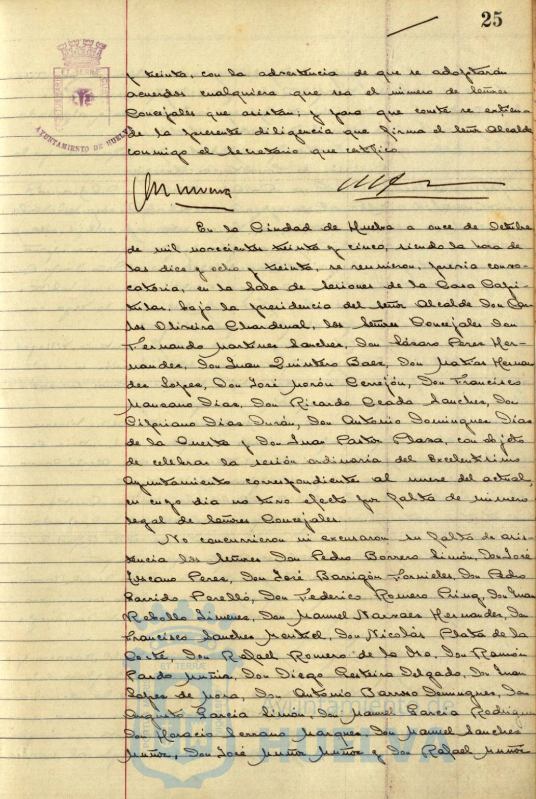 25
AYUNTAMIENTO DE HUELVA
y treinta, con la advertencia de que se adoptarán
acuerdos cualquiera que sea el número de Señores
Concejales que asistan; y para que conste se extien-
de la presente diligencia que firma el Señor Alcalde
conmigo el Secretario que certifico
En la Ciudad de Huelva a once de Octubre
de mil novecientos treinta y cinco, siendo la hora de
las diez y ocho y treinta, se reunieron, previa convo-
catoria, en la Sala de Sesiones de la Casa Capi-
tular, bajo la presidencia del Señor Alcalde Don Car-
los Oliveira Chardenal, los Señores Concejales Don
Fernando Martinez Sanchez, Don Lázaro Perez Her-
nandez, Don Juan Quintero Baez, Don Matias Hernan
dez Lopez, Don José Morón Cerrejón, Don Francisco
Manzano Dias, Don Ricardo Sanchez, Don
Cipriano Dias Durán, Don Antonio Dominguez Dias
de la y Don Juan Pastor Plaza, con objeto
de celebrar la sesión ordinaria del Excelentísimo
Ayuntamiento correspondiente al nueve del actual,
en cuyo dia no tuvo efecto por falta de número
legal de Señores Concejales.
No concurrieron ni excusaron su falta de asis-
tencia los Señores Don Pedro Borrero Limón, Don José
Toscano Perez, Don José Barrigón Fornieles, Don Pedro
Garrido Perelló, Don Federico Romero Don Juan
Rebollo Jimenez, Don Manuel Narvaez Hernandez, Don
Francisco Sanchez Don Nicolás Plata de la
Don Rafael Romero de la Don Ramón
Pardo Don Diego Delgado, Don Juan
Lopez de Mora, Don Antonio Barroso Dominguez, Don
Augusto Garcia Limón, Don Manuel Garcia Rodriguez
Don Horacio Serrano Marquez, Don Manuel Sanchez
Muñoz, Don José Muñoz Muñoz y Don Rafael Muñoz
Ayuntamiento de
HUELVA